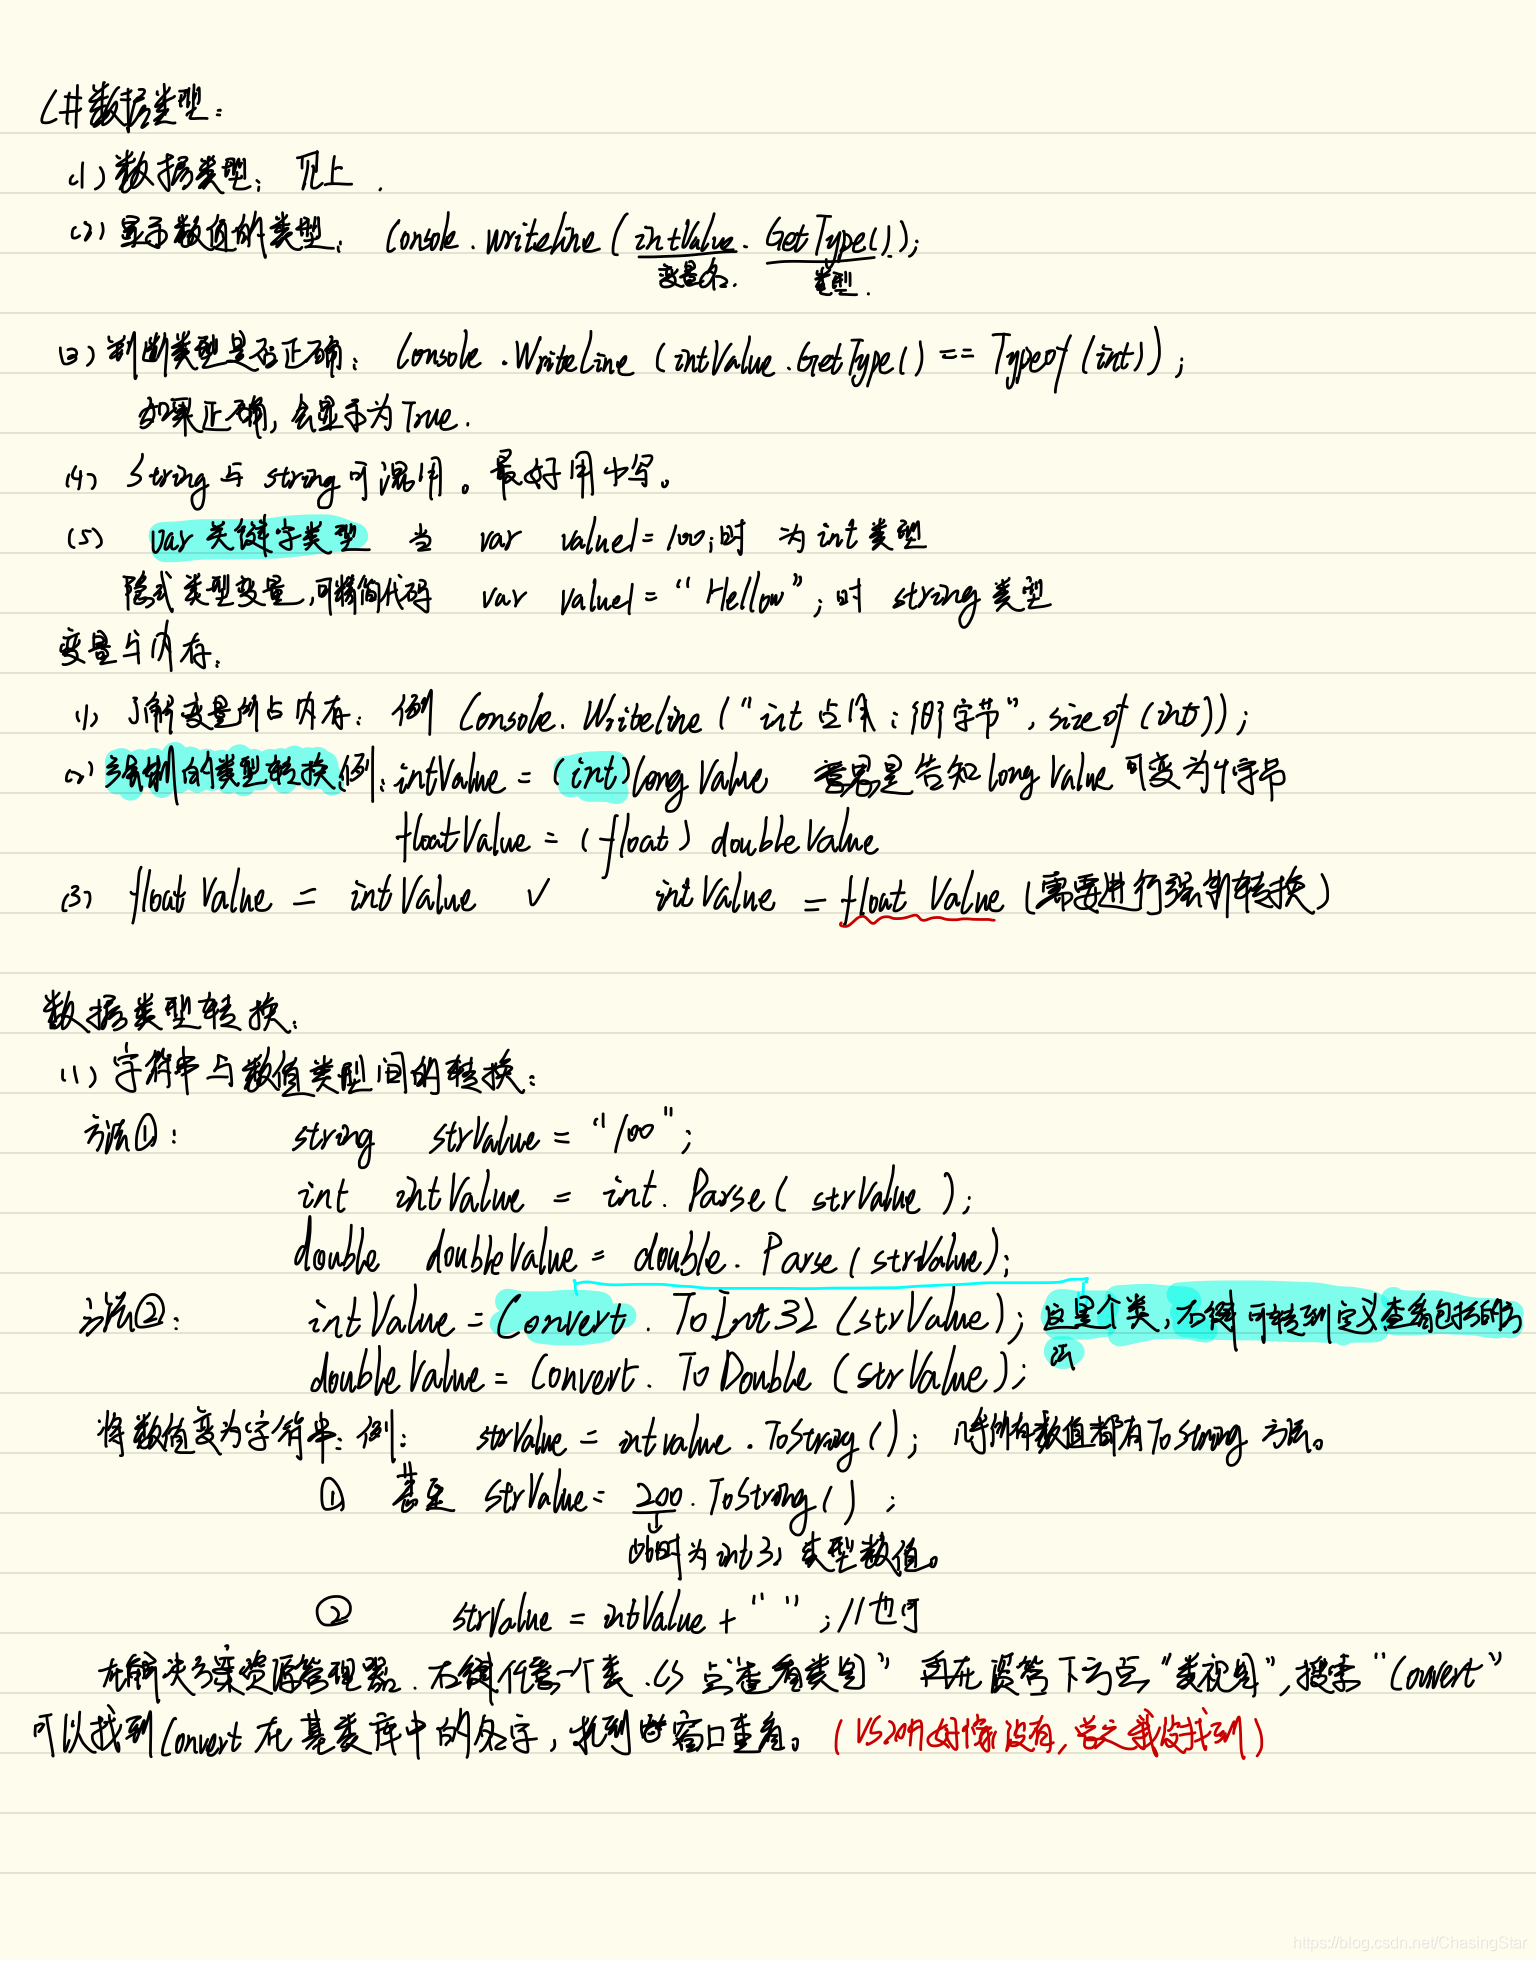 C#数据类型:
(1) 数据类型: 见上.
(2) 显示数值的类型: Console.WriteLine(intValue.GetType());
变量名. 类型.
(3) 判断类型是否正确: Console.WriteLine(intValue.GetType() == Typeof(int));
如果正确, 会显示为True.
(4) String与string可混用。最好用小写。
(5) var关键字类型 当 var value1=100;时 为int类型
隐式类型变量,可精简代码 var value1= "Hellow"; 时 string类型
变量与内存:
(1) 了解变量所占内存: 例 Console.WriteLine("int占用:{0}字节", sizeof(int));
(2) 强制的类型转换 例: intValue = (int)longValue 意思是告知longValue可变为4字节
floatValue = (float) doubleValue
(3) floatValue = intValue ✓ intValue = floatValue (需要进行强制转换)
数据类型转换:
(1) 字符串与数值类型间的转换:
方法①: string strValue = "100";
int intValue = int.Parse( strValue );
double doubleValue = double.Parse(strValue);
方法②: intValue = Convert.ToInt32 (strValue); 这是个类, 右键可转到定义查看包括的方
法
doubleValue = Convert.ToDouble (strValue);
将数值变为字符串: 例: strValue = intvalue.ToString(); 几乎所有数值都有ToString方法。
① 甚至 strValue= 200.ToString() ;
此时为int32类型数值。
② strValue = intValue + " " ; //也可
在解决方案资源管理器. 右键任意一个类.cs 点"查看类图" 再在资管下方点"类视图", 搜索"Convert"
可以找到Convert在基类库中的名字, 拖到此窗口查看。(VS2019好像没有, 总之我没找到)
https://blog.csdn.net/ChasingStar